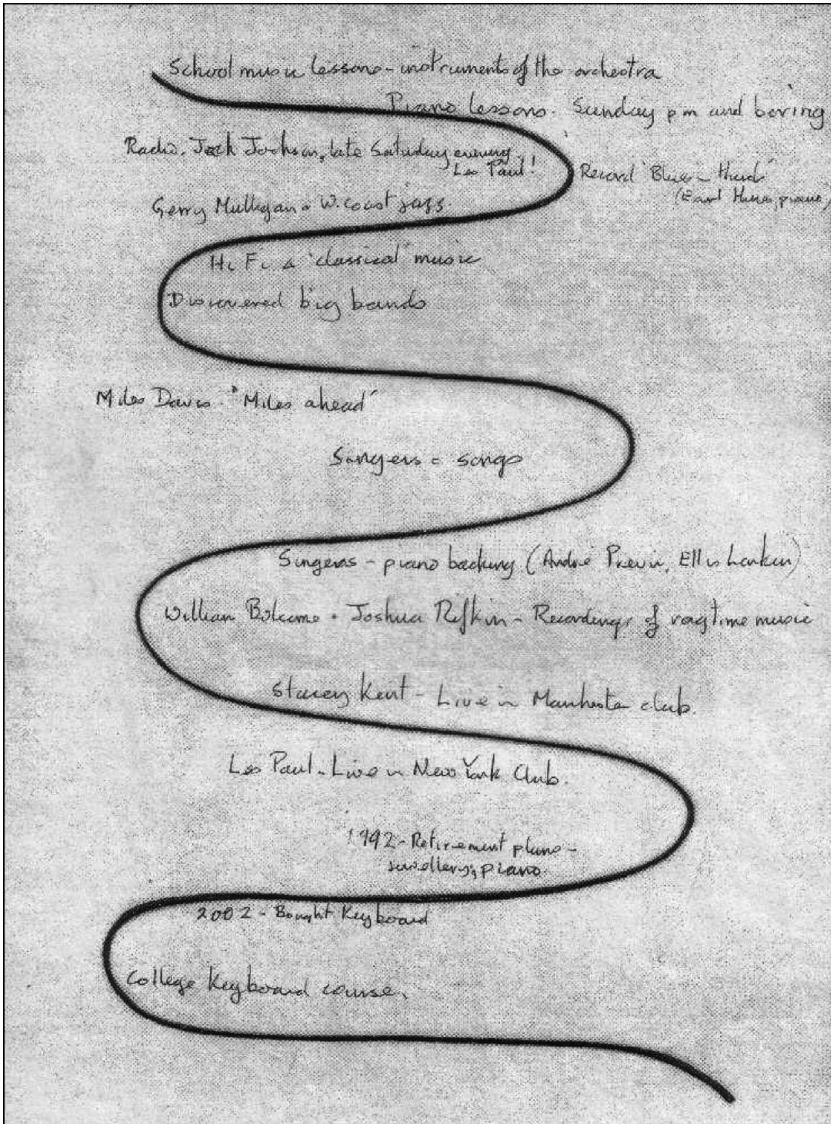 School music lessons - instruments of the orchestra
Piano lessons. Sunday pm and boring
Radio. Jack Jackson, late Saturday evening,
Les Paul!
Record "Blues in thirds"
(Earl Hines, piano)
Gerry Mulligan & W. coast jazz.
Hi Fi & 'classical' music
Discovered big bands
Miles Davis - "Miles ahead"
Singers = songs
Singers - piano backing (André Previn, Ellis Larkin)
William Bolcome & Joshua Rifkin - Recordings of ragtime music
Stacey Kent - Live in Manchester club.
Les Paul - Live in New York Club.
1992 - Retirement plans -
piano.
2002 - Bought Keyboard
College Keyboard course.